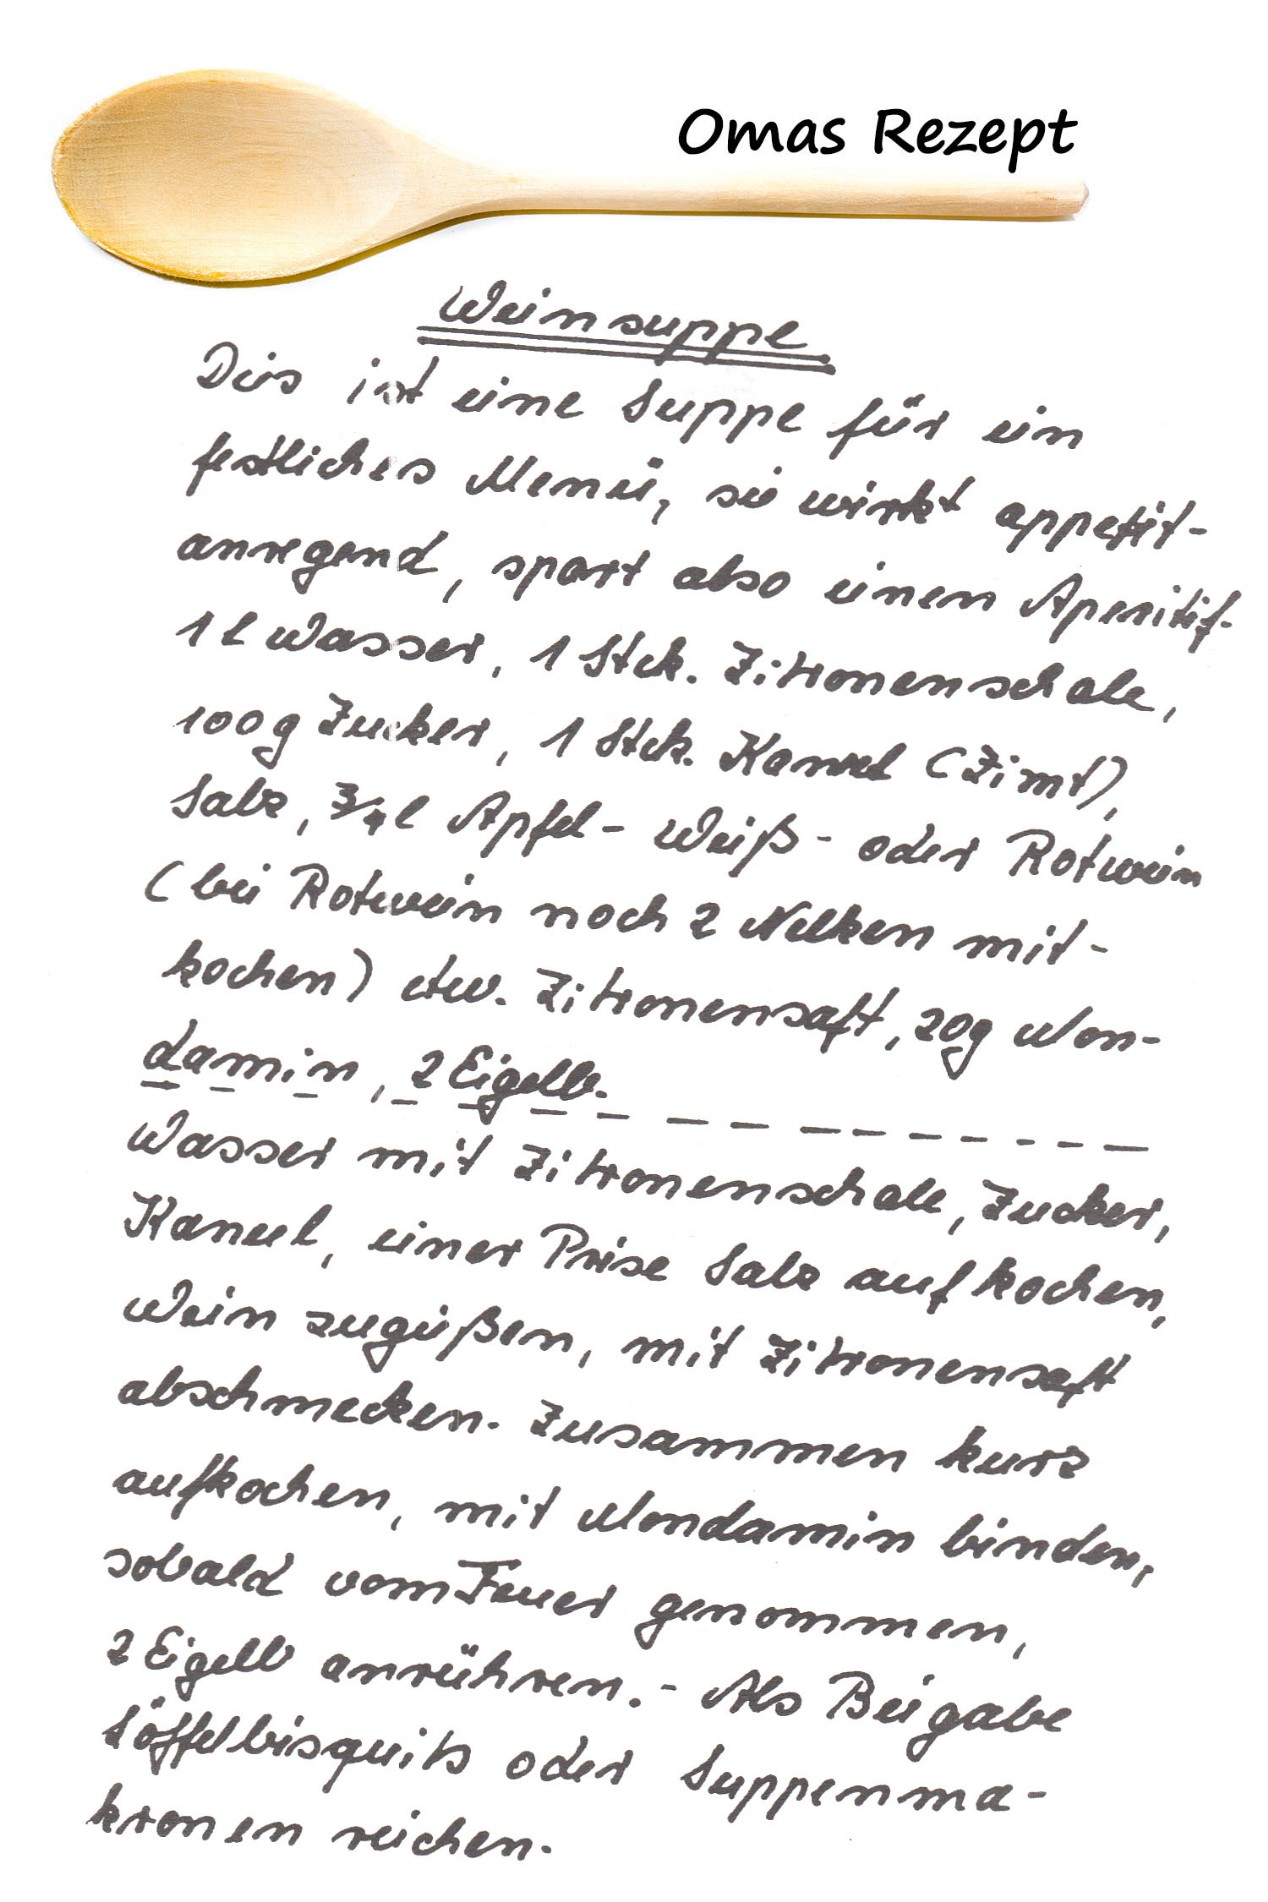 Omas Rezept
Weinsuppe
Dies ist eine Suppe für ein
festliches Menü, sie wirkt appetit-
anregend, spart also einen Aperitif.
1 l Wasser, 1 Stck. Zitronenschale,
100g Zucker, 1 Stck. Kaneel (Zimt),
Salz, 3/4 l Apfel- Weiß- oder Rotwein
(bei Rotwein noch 2 Nelken mit-
kochen) etw. Zitronensaft, 20g Mon-
damin, 2 Eigelb.
Wasser mit Zitronenschale, Zucker,
Kaneel, einer Prise Salz aufkochen,
Wein zugießen, mit Zitronensaft
abschmecken. Zusammen kurz
aufkochen, mit Mondamin binden,
sobald vom Feuer genommen,
2 Eigelb anrühren. - Als Beigabe
Löffelbisquits oder Suppenma-
kronen reichen.